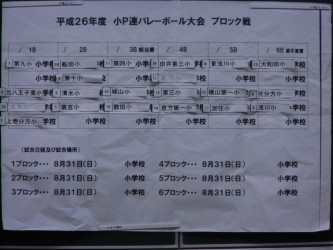 平成26年度 小P連バレーボール大会 ブロック戦
1B 2B 3B 4B 5B 6B
第九小 小学校 船田小 第四小 小学校 由井第三小 東浅川小 大和田小
第十小 小学校 小学校 小学校
北八王子東小 清水小 城山小 第三小 横山第一小 弐分方小
第五小 散田小 恩方第一小 加住小 浅川小
上壱分方小 小学校 小学校 小学校 小学校 小学校
(試合日程及び試合場所)
1ブロック・・・ 8月31日(日) 小学校 4ブロック・・・ 8月31日(日) 小学校
2ブロック・・・ 8月31日(日) 小学校 5ブロック・・・ 8月31日(日) 小学校
3ブロック・・・ 8月31日(日) 小学校 6ブロック・・・ 8月31日(日) 小学校